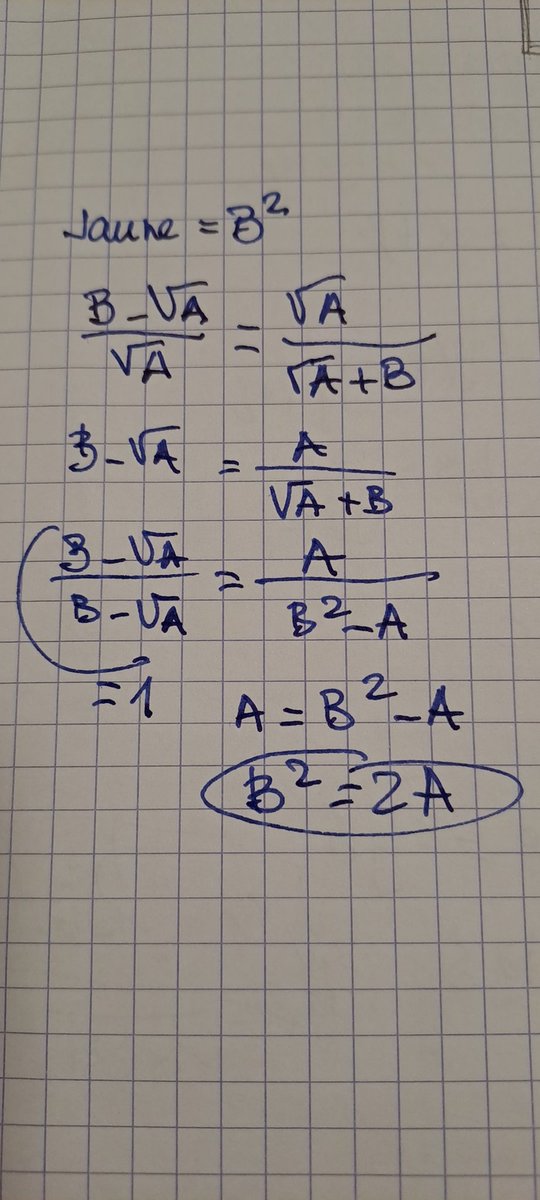 Jaune = B²
(B - √A)/√A = √A/(√A + B)
B - √A = A/(√A + B)
(B - √A)/(B - √A) = A/(B² - A)
= 1 A = B² - A
B² = 2A